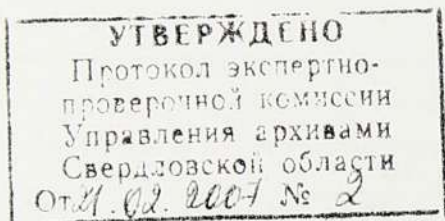 УТВЕРЖДЕНО
Протокол экспертно-
проверочной комиссии
Управления архивами
Свердловской области
От 21.02.2007 № 2